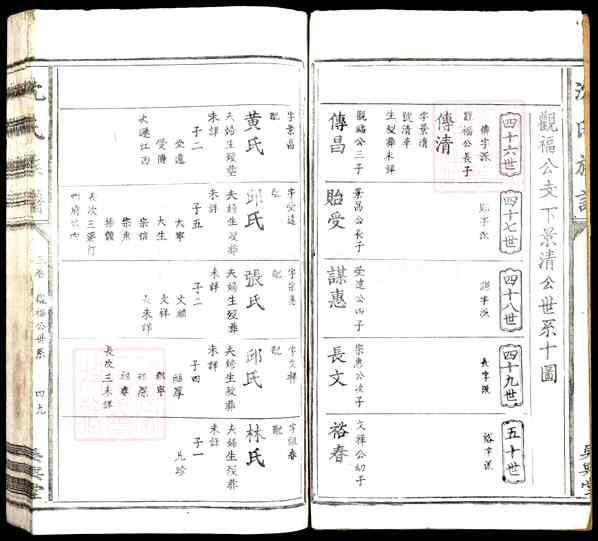 觀福公支下景清公世系十圖
四十六世
傳字派
傳清
觀福公長子
字景清
號清幸
生歿葬未詳
傳昌
觀福公三子
字景昌
配
黃氏
夫婦生歿葬
未詳
子二
受遠
受傳
次遷江西
四十七世
貽受
景昌公長子
字受遠
配
邱氏
夫婦生歿葬
未詳
子五
大寧
大生
宗信
宗惠
四十八世
謀字派
謀惠
受遠公四子
字宗惠
配
張氏
夫婦生歿葬
未詳
子二
文祥
長未詳
四十九世
長字派
長文
宗惠公次子
字文祥
配
邱氏
夫婦生歿葬
未詳
子四
長次三未詳
五十世
裕字派
裕春
文祥公幼子
配
林氏
夫婦生歿葬
未詳
子一
沈氏族譜
三卷
觀福公世系
四九
吳興堂